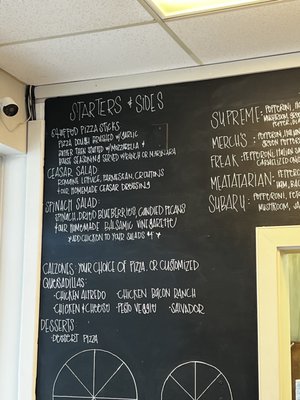 STARTERS & SIDES
STUFFED PIZZA STICKS
PIZZA DOUGH BRUSHED W/ GARLIC
BUTTER THEN STUFFED W/ MOZZARELLA &
HOUSE SEASONING SERVED W/ RANCH OR MARINARA
CEASAR SALAD
ROMAINE LETTUCE, PARMESAN, CROUTONS
& OUR HOMEMADE CEASAR DRESSING
SPINACH SALAD:
SPINACH, DRIED BLUEBERRIES, CANDIED PECANS
& OUR HOMEMADE BALSAMIC VINEGARETTE
*ADD CHICKEN TO YOUR SALADS
CALZONES: YOUR CHOICE OF PIZZA, OR CUSTOMIZED
QUESADILLAS:
·CHICKEN ALFREDO ·CHICKEN BACON RANCH
·CHICKEN & CHEESE ·PESTO VEGGIE ·SALVADOR
DESSERTS
·DESSERT PIZZA
SUPREME: PEPPERONI,
MUSHROOM,
MERCH'S: PEPPERONI, ITALIAN
GREEN PEPPERS
FREAK: PEPPERONI, ITALIAN
CARAMELIZED ONI
MEATATARIAN: PEPPER
HAM, BA
SUBARU: PEPPERONI,
MUSHROOM,